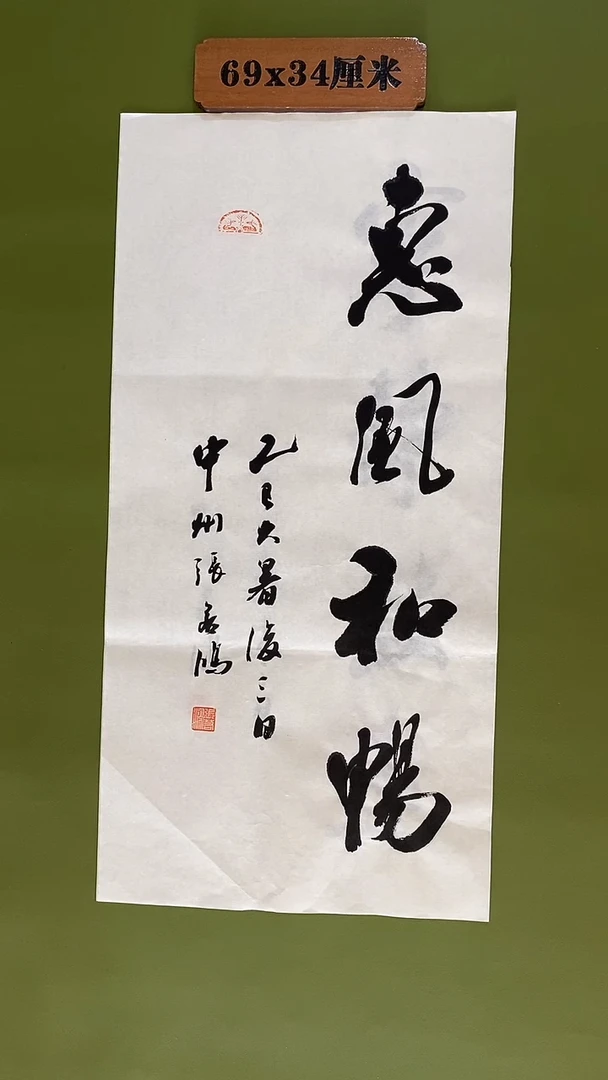 69x34厘米
惠風和暢
乙巳大暑後三日
中州張善鴻